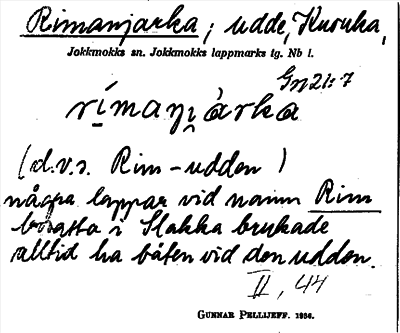 Rimanjarka; udde, Kuouka,
Jokkmokks sn. Jokkmokks lappmarks tg. Nb l.
Gn 21:7
rímanjàrka
(d.v.s. Rim-udden)
några lappar vid namn Rim
bosatta i Slakka brukade
alltid ha båten vid den udden.
II, 44
GUNNAR PELLIJEFF. 1936.